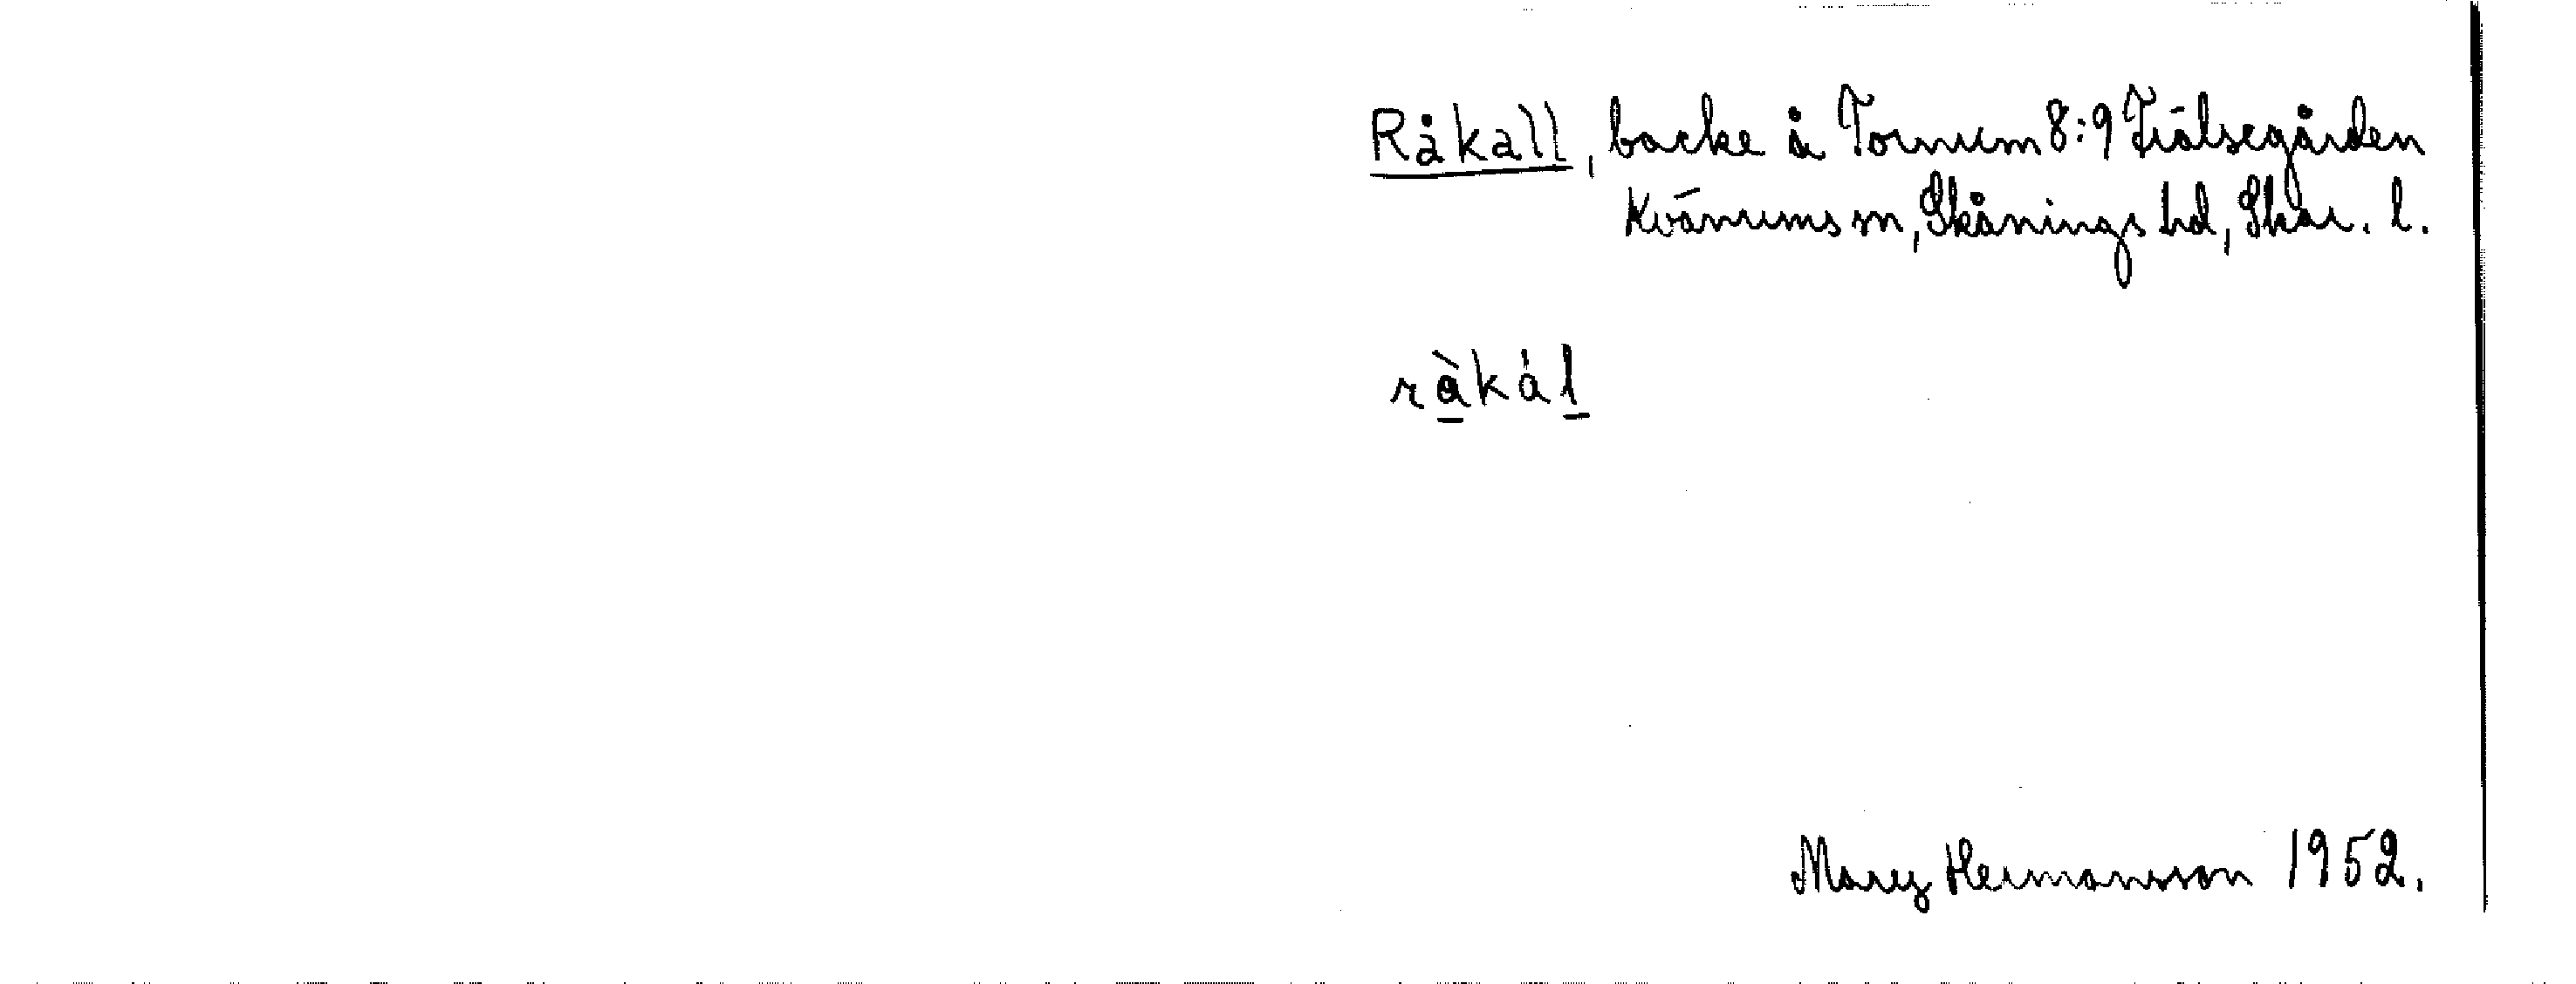 Råkall, backe å Tornum 8:9 Frälsegården
Kvänums sn, Skånings hd, Skar. l.
ràkál
Mary Hermansson 1952.